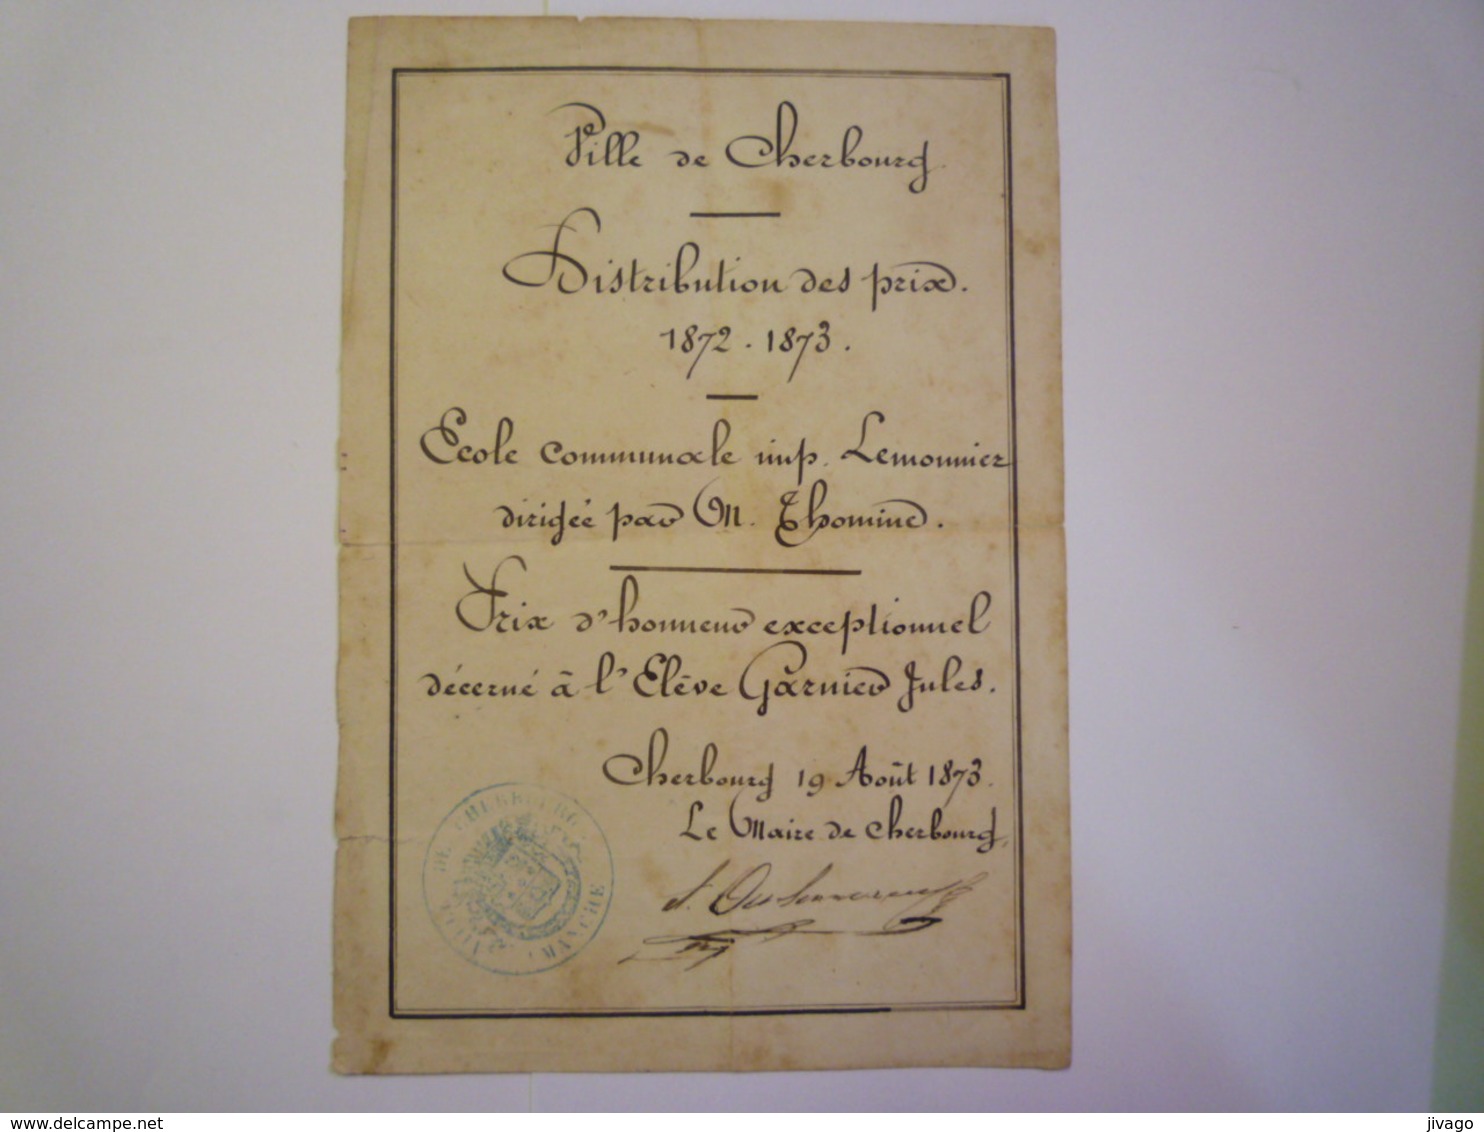 Ville de Cherbourg
Distribution des prix.
1872 - 1873.
Ecole communale imp. Lemonnier
dirigée par M. Thomine.
Prix d'honneur exceptionnel
décerné à l'Elève Garnier Jules.
Cherbourg 19 Août 1873.
Le Maire de Cherbourg,
VILLE DE CHERBOURG
(MANCHE
www.delcampe.net
jivago